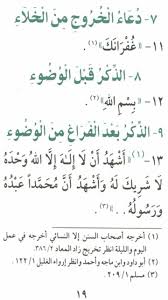 ٧- دُعَاءُ الْخُرُوجِ مِنَ الْخَلَاءِ
١١- «غُفْرَانَكَ»(١).
٨- الذِّكْرُ قَبْلَ الْوُضُوءِ
١٢- «بِسْمِ اللهِ»(٢).
٩- الذِّكْرُ بَعْدَ الْفَرَاغِ مِنَ الْوُضُوءِ
١٣-(١) «أَشْهَدُ أَنْ لَا إِلَهَ إِلَّا اللهُ وَحْدَهُ
لَا شَرِيكَ لَهُ وَأَشْهَدُ أَنَّ مُحَمَّداً عَبْدُهُ
وَرَسُولُهُ . .»(٣).
(١) أخرجه أصحاب السنن إلا النسائي أخرجه في عمل
اليوم والليلة انظر تخريج زاد المعاد ٣٨٦/٢.
(٢) أبو داود وابن ماجه وأحمد وانظر إرواء الغليل ١٢٢/١.
(٣) مسلم ٢٠٩/١.
١٩